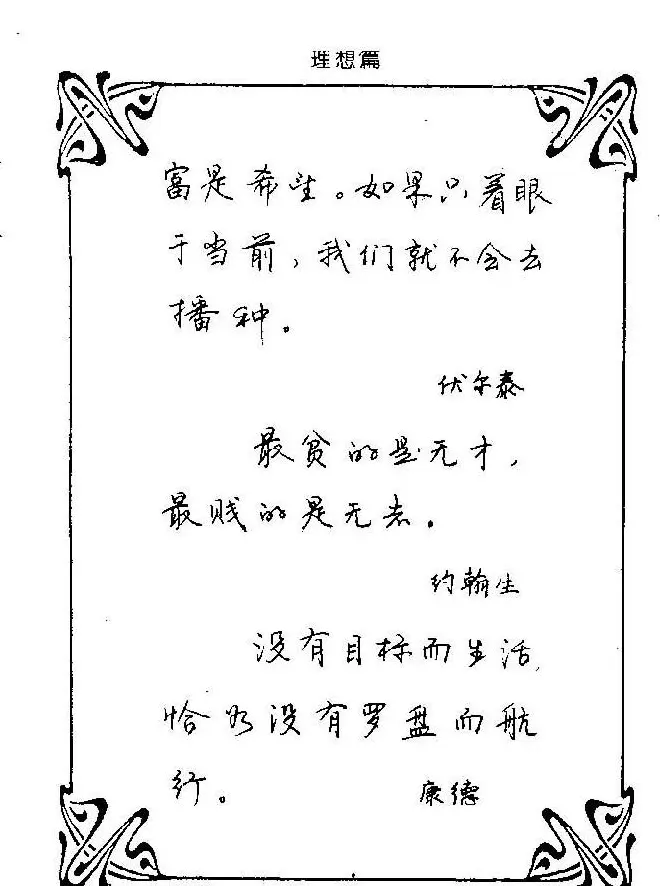 理想篇
富是希望。如果只着眼
于当前，我们就不会去
播种。
伏尔泰
最贫的是无才，
最贱的是无志。
约翰生
没有目标而生活，
恰如没有罗盘而航
行。
康德